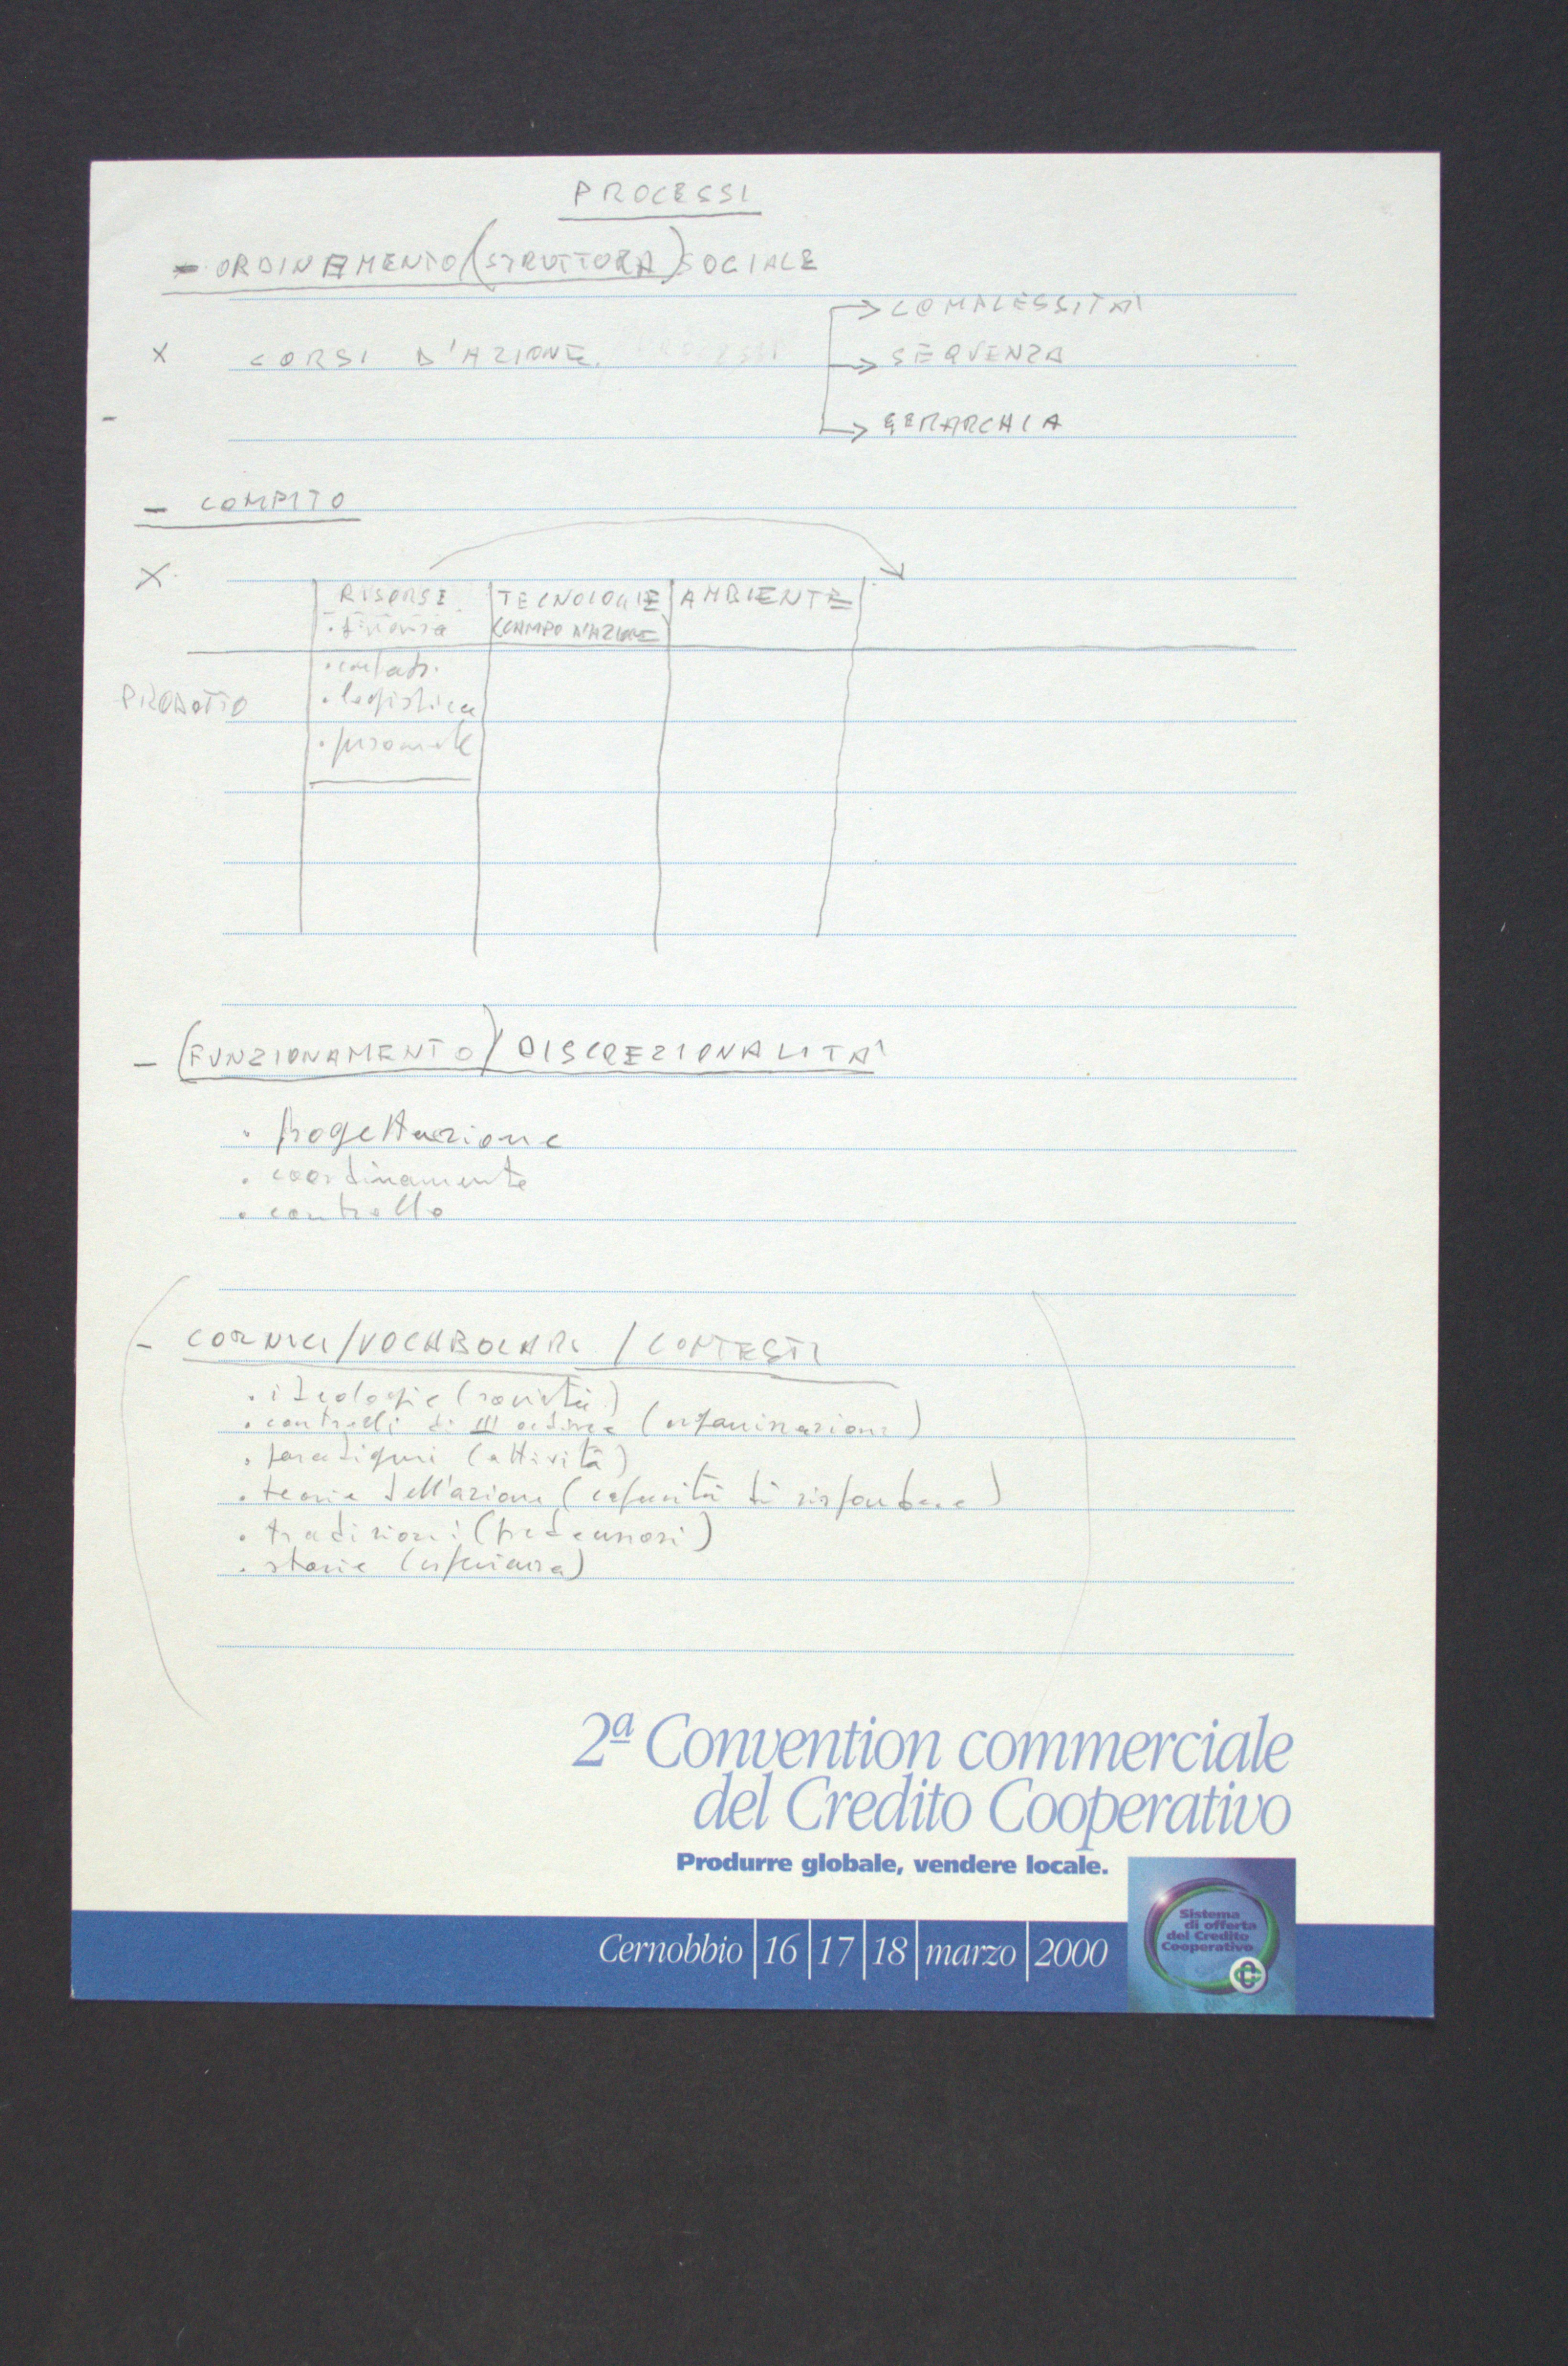 PROCESSI
- ORDINAMENTO (STRUTTURA) SOCIALE
→ COMPLESSITA'
x CORSI D'AZIONE → SEQUENZA
-
→ GERARCHIA
- COMPITO
X
RISORSE | TECNOLOGIE | AMBIENTE
. finanza (CAMPO D'AZIONE
. contatti
PRODOTTO . logistica
. personale
- (FUNZIONAMENTO) DISCREZIONALITA'
. progettazione
. coordinamento
. controllo
- CORNICI/VOCABOLARI / CONTESTI
. ideologie (società)
. controlli di III ordine (organizzazione)
. paradigmi (attività)
. teorie dell'azione (capacità di rispondere)
. tradizioni (predecessori)
. storie (esperienza)
2ª Convention commerciale
del Credito Cooperativo
Produrre globale, vendere locale.
Sistema
di offerta
del Credito
Cooperativo
Cernobbio | 16 | 17 | 18 | marzo | 2000